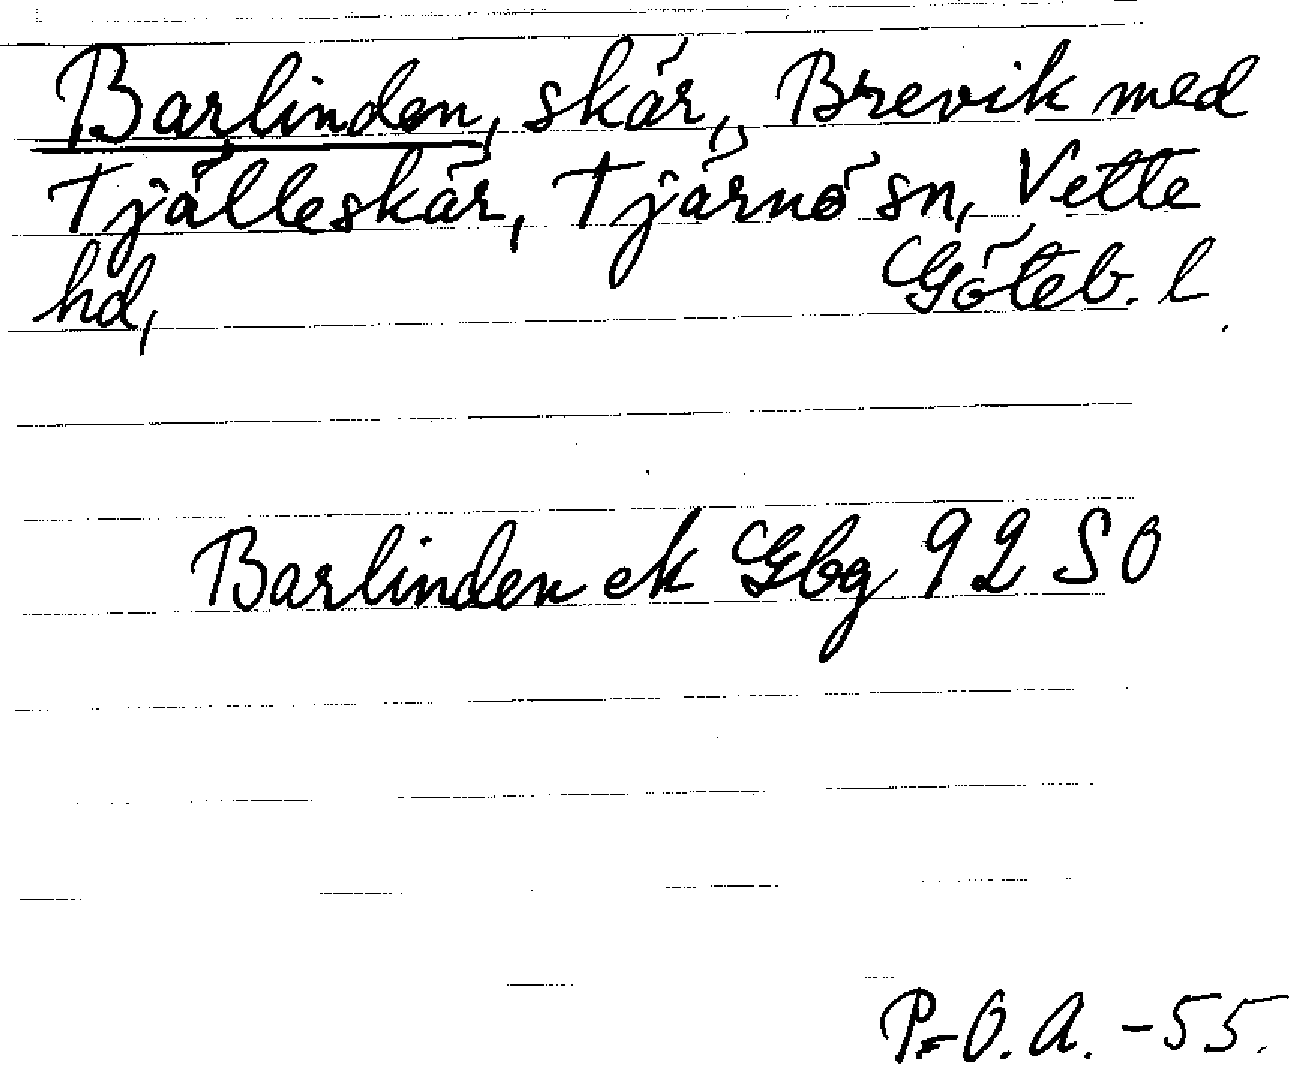 Barlinden, skär, Brevik med
Tjälleskär, Tjärnö sn, Vette
hd, Göteb. l.
Barlinden ek Gbg 92 SO
P-O.A. -55.